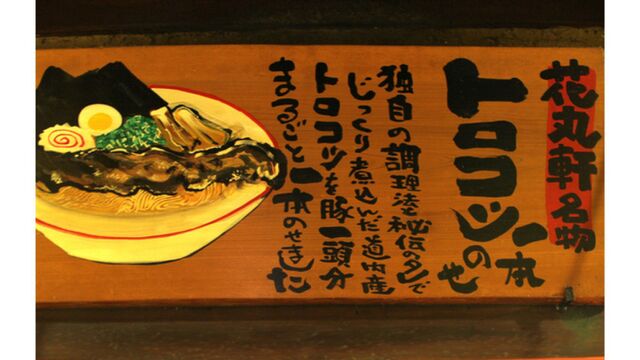 花丸軒名物
トロコツ一本のせ
独自の調理法秘伝のタレで
じっくり煮込んだ道内産
トロコツを豚一頭分
まるごと一本のせました